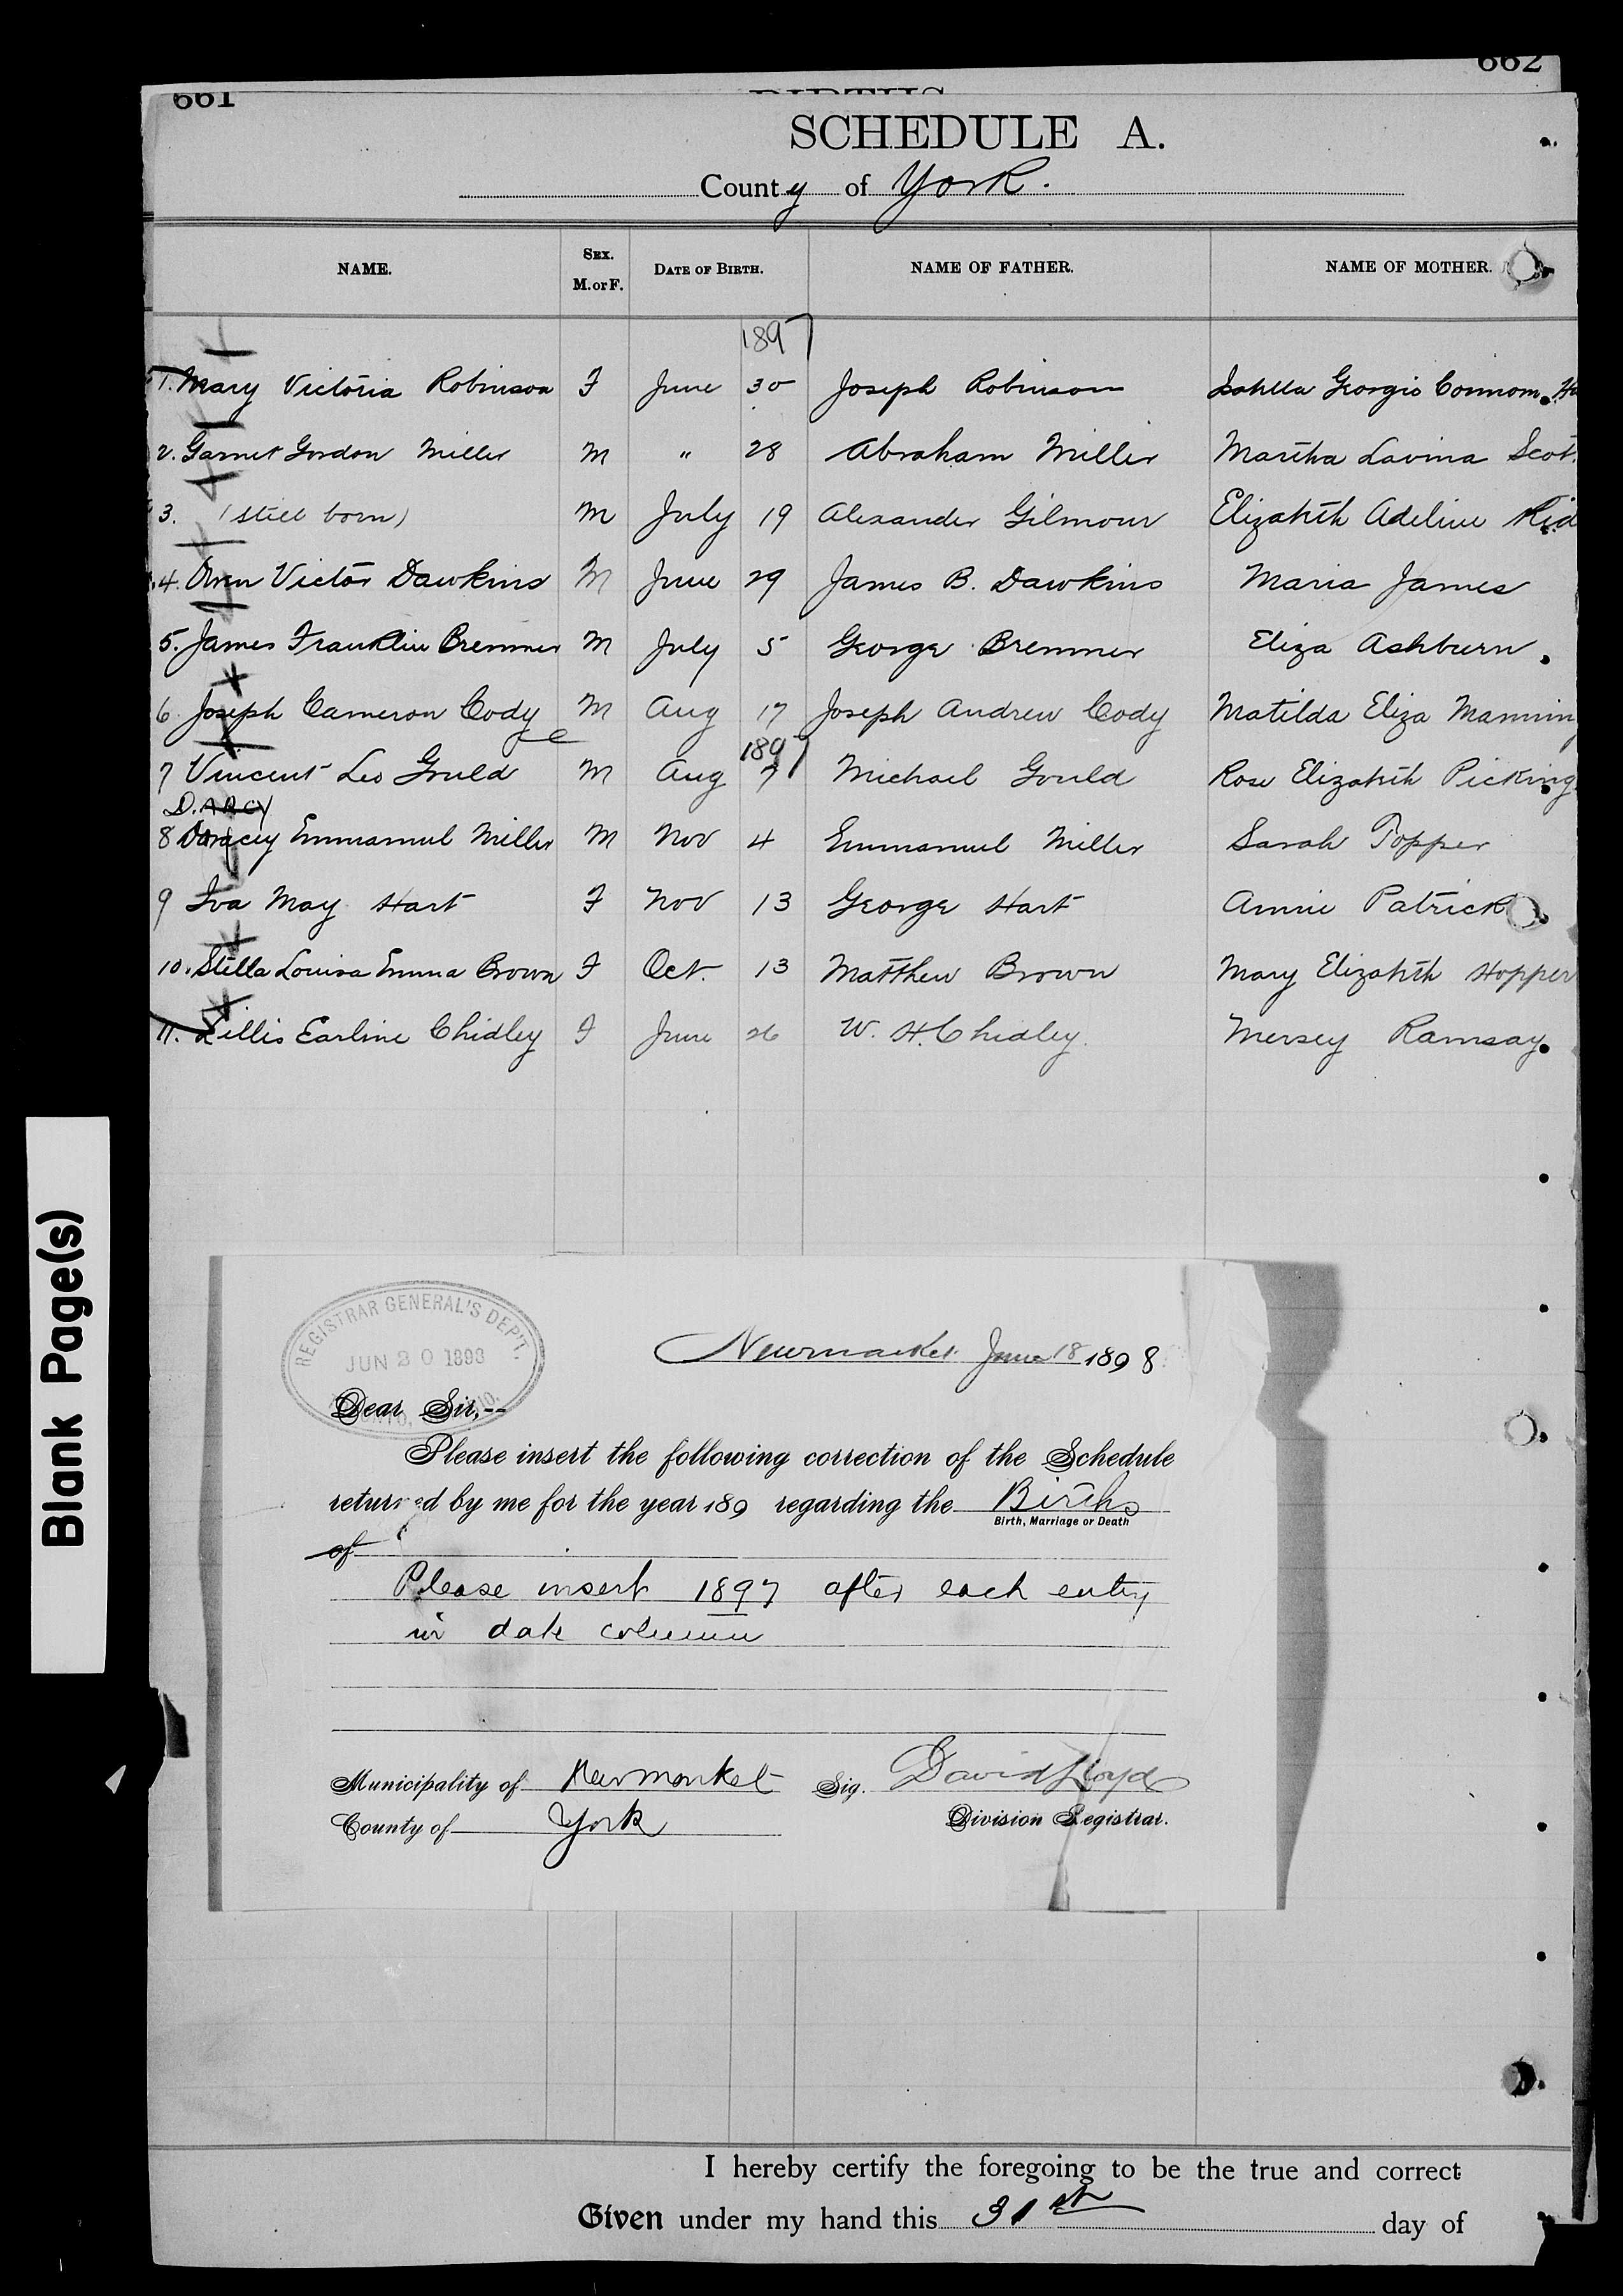 662
661
BIRTHS
SCHEDULE A.
County of York.
NAME. SEX. M. or F. DATE OF BIRTH. NAME OF FATHER. NAME OF MOTHER.
1897
1. Mary Victoria Robinson F June 30 Joseph Robinson Isabella Georgie
2. Garnet Gordon Miller M " 28 Abraham Miller Martha Lavina Scot
3. (still born) M July 19 Alexander Gilmour Elizabeth Adeline Rid
4. Owen Victor Dawkins M June 29 James B. Dawkins Maria James
5. James Franklin Bremner M July 5 George Bremner Eliza Ashburn
6 Joseph Cameron Cody M Aug 17 Joseph Andrew Cody Matilda Eliza Mannin
1897
7 Vincent Leo Gould M Aug 7 Michael Gould Rose Elizabeth Picking
D.ARCY
8 Emmanuel Miller M Nov 4 Emmanuel Miller Sarah Topper
9 Iva May Hart F Nov 13 George Hart Annie Patrick
10. Stella Louisa Emma Brown F Oct. 13 Matthew Brown Mary Elizabeth Hopper
11. Lillis Earline Chidley F June 26 W. H. Chidley. Mersey Ramsay
Blank Page(s)
REGISTRAR GENERAL'S DEP'T.
JUN 20 1898
Newmarket June 18 1898
Dear Sir,--
Please insert the following correction of the Schedule
returned by me for the year 189 regarding the Births
Birth, Marriage or Death
of
Please insert 1897 after each entry
in date column
Municipality of Newmarket Sig. David Lloyd
County of York Division Registrar.
I hereby certify the foregoing to be the true and correct
Given under my hand this 31st day of